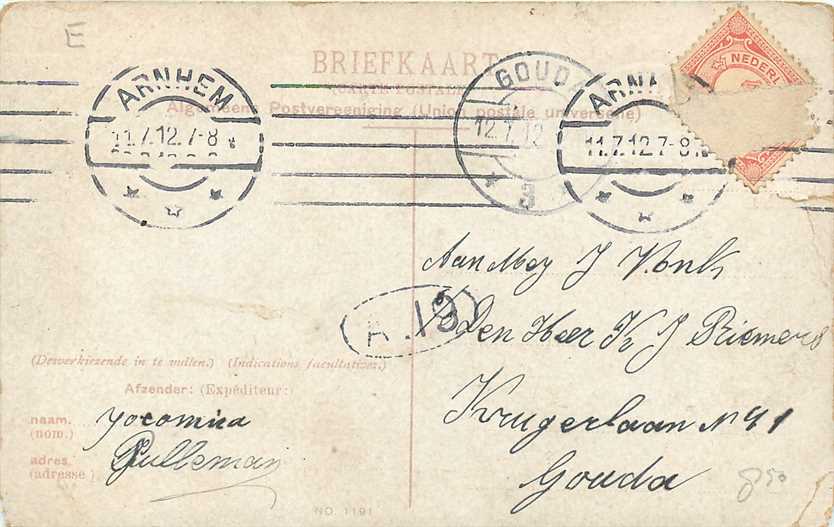 E
BRIEFKAART
(CARTE POSTALE)
Algemeene Postvereeniging (Union postale universelle)
ARNHEM
11.7.12.7-8
GOUDA
12.7.12
3
ARNHEM
11.7.12.7-8
NEDERL
Aan Mej J Vonk
p/a Den Heer K J Riemers
A.13
Krugerlaan No 41
Gouda
(Desverkiezende in te vullen.) (Indications facultatives.)
Afzender: (Expéditeur:)
naam. Jocomina
(nom.)
adres. Pulleman
(adresse)
NO. 1191
8 50